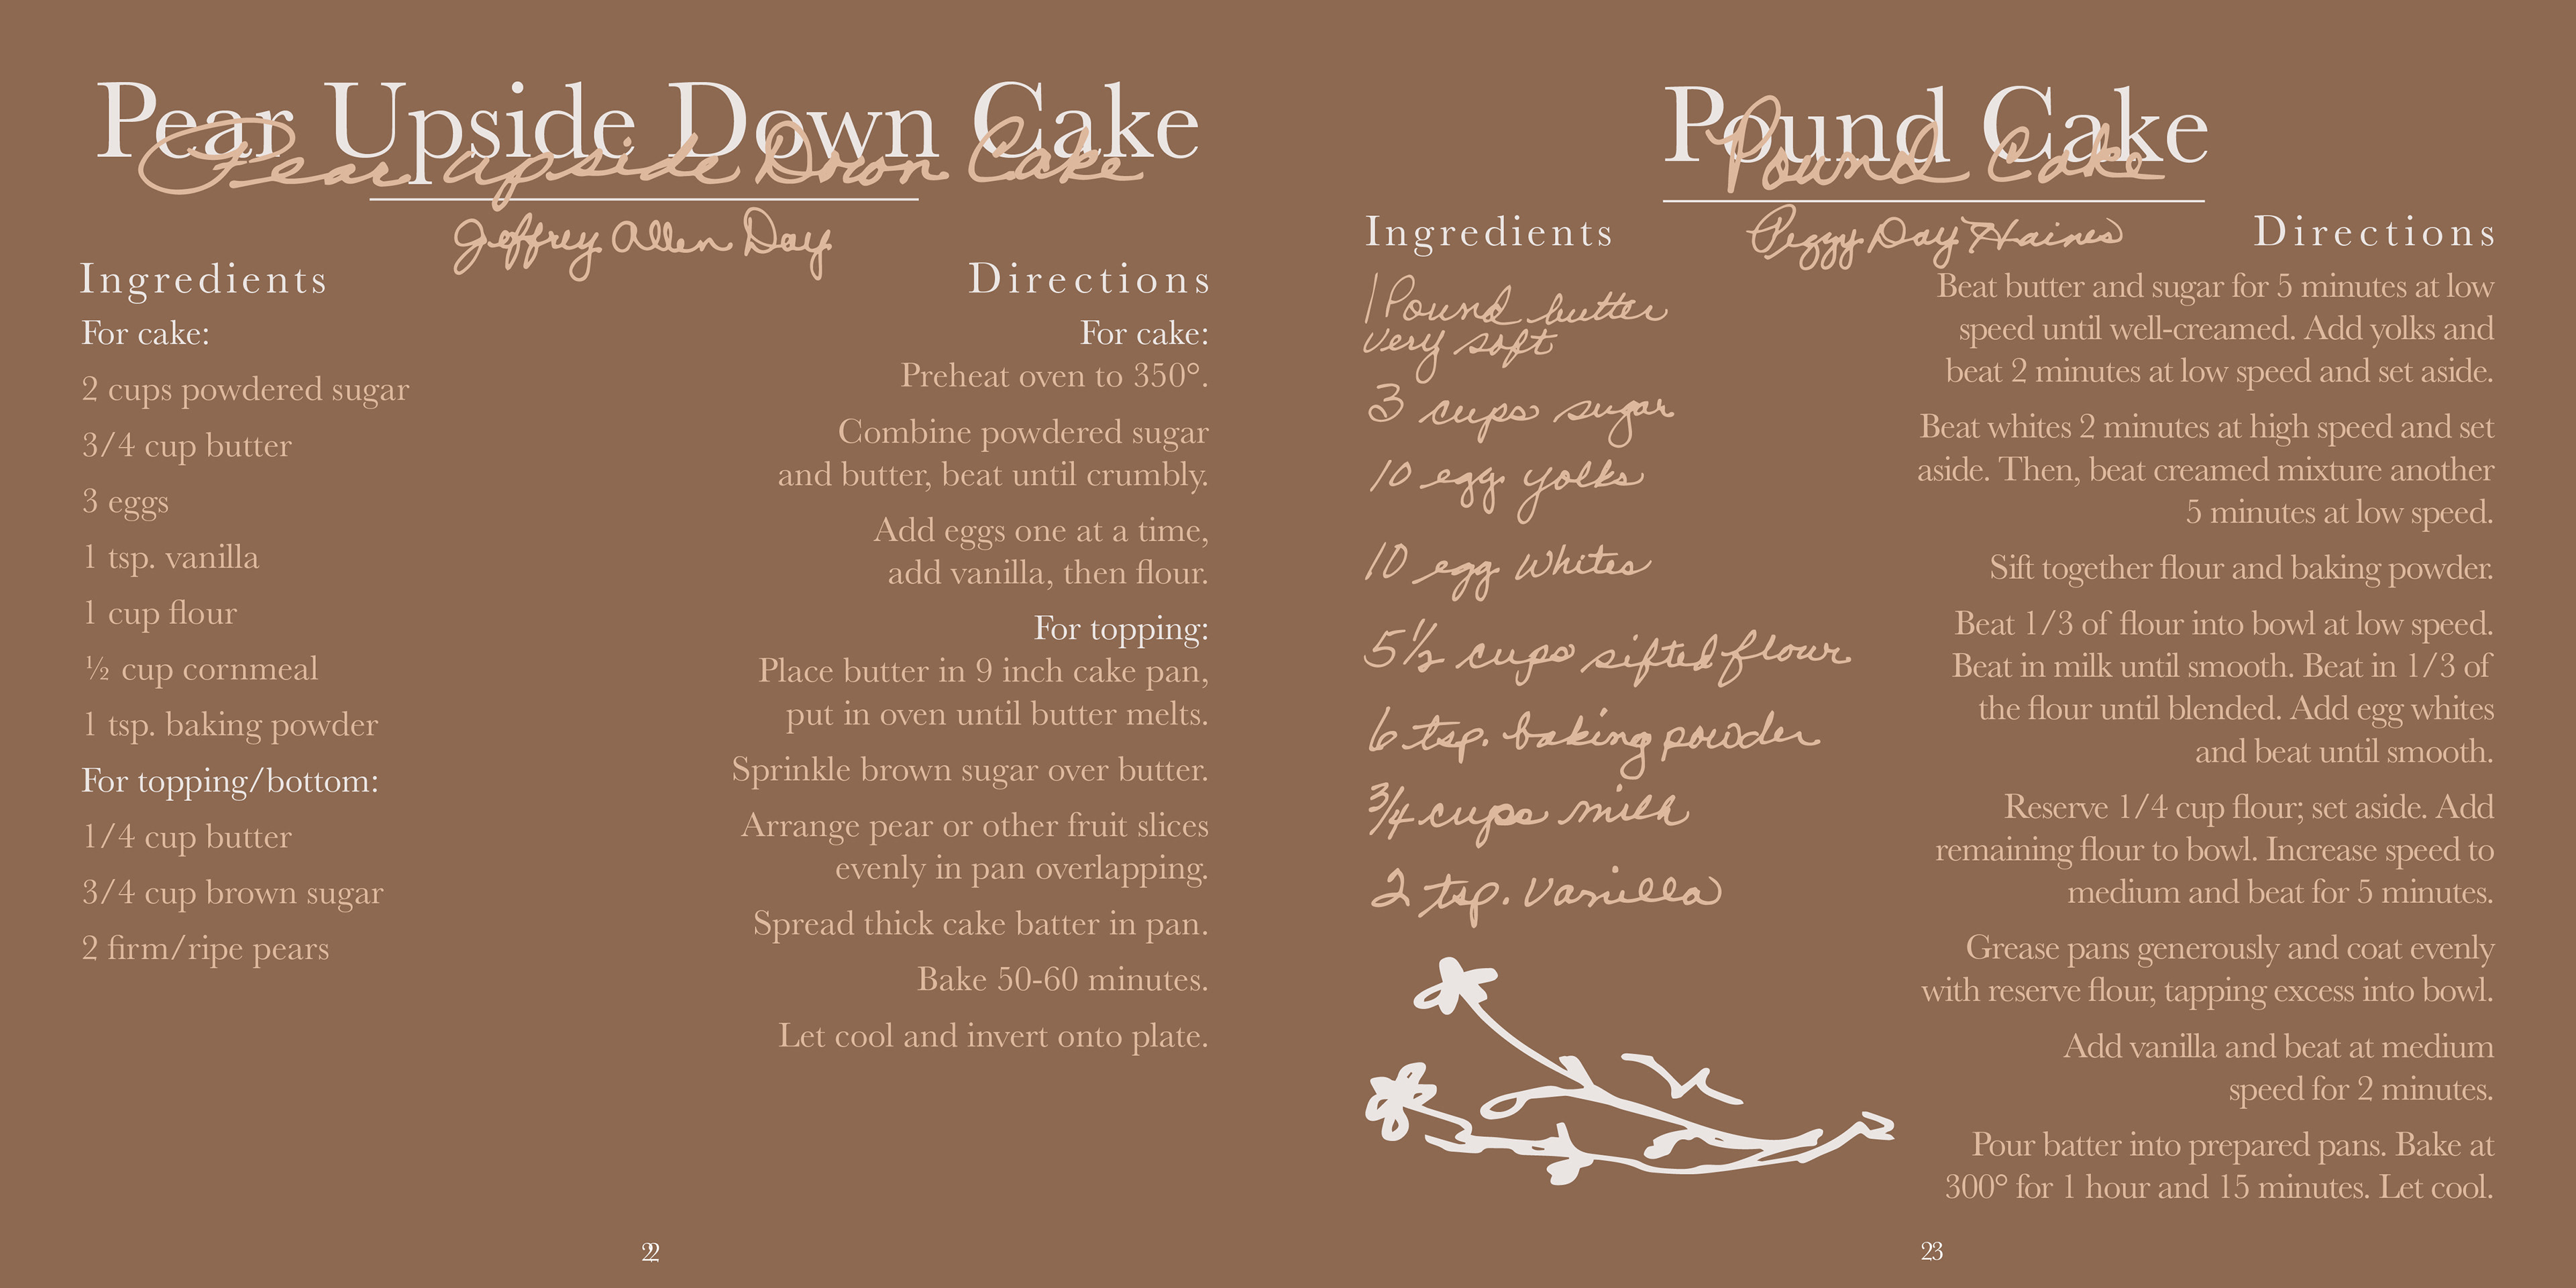 Pear Upside Down Cake
Pear Upside Down Cake
Jeffrey Allen Day
Ingredients
For cake:
2 cups powdered sugar
3/4 cup butter
3 eggs
1 tsp. vanilla
1 cup flour
½ cup cornmeal
1 tsp. baking powder
For topping/bottom:
1/4 cup butter
3/4 cup brown sugar
2 firm/ripe pears
Directions
For cake:
Preheat oven to 350°.
Combine powdered sugar
and butter, beat until crumbly.
Add eggs one at a time,
add vanilla, then flour.
For topping:
Place butter in 9 inch cake pan,
put in oven until butter melts.
Sprinkle brown sugar over butter.
Arrange pear or other fruit slices
evenly in pan overlapping.
Spread thick cake batter in pan.
Bake 50-60 minutes.
Let cool and invert onto plate.
22
Pound Cake
Pound Cake
Peggy Day Haines
Ingredients
1 Pound butter
very soft
3 cups sugar
10 egg yolks
10 egg whites
5 1/2 cups sifted flour
6 tsp. baking powder
3/4 cups milk
2 tsp. vanilla
Directions
Beat butter and sugar for 5 minutes at low
speed until well-creamed. Add yolks and
beat 2 minutes at low speed and set aside.
Beat whites 2 minutes at high speed and set
aside. Then, beat creamed mixture another
5 minutes at low speed.
Sift together flour and baking powder.
Beat 1/3 of flour into bowl at low speed.
Beat in milk until smooth. Beat in 1/3 of
the flour until blended. Add egg whites
and beat until smooth.
Reserve 1/4 cup flour; set aside. Add
remaining flour to bowl. Increase speed to
medium and beat for 5 minutes.
Grease pans generously and coat evenly
with reserve flour, tapping excess into bowl.
Add vanilla and beat at medium
speed for 2 minutes.
Pour batter into prepared pans. Bake at
300° for 1 hour and 15 minutes. Let cool.
23